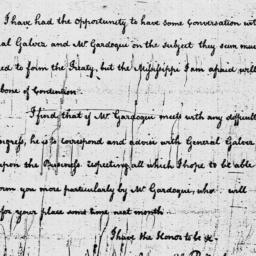 I have had the Opportunity to have some Conversation wit
al Galvez and Mr Gardoqui on the subject they seem muc
ed to form the Treaty, but the Mississippi I am afraid will
bone of Contention.
I find that if Mr Gardoqui meets with any difficult
ngress, he is to correspond and advise with General Galvez
upon the Business respecting all which I hope to be able
orm you more particularly by Mr Gardoqui, who will
for your place some time next month.
I have the Honor to be &.